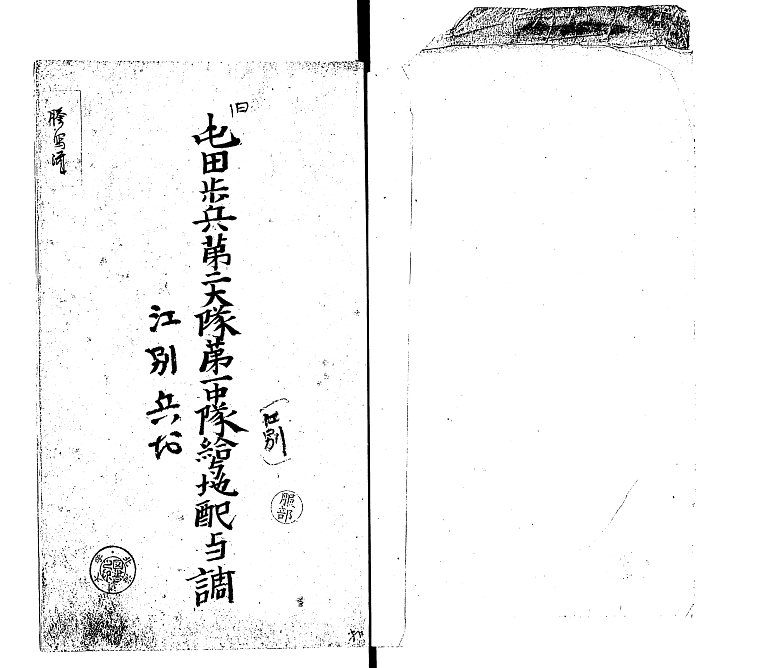 旧
屯田歩兵第二大隊第一中隊給与地配与調
(江別)
服部
江別兵村
謄写済